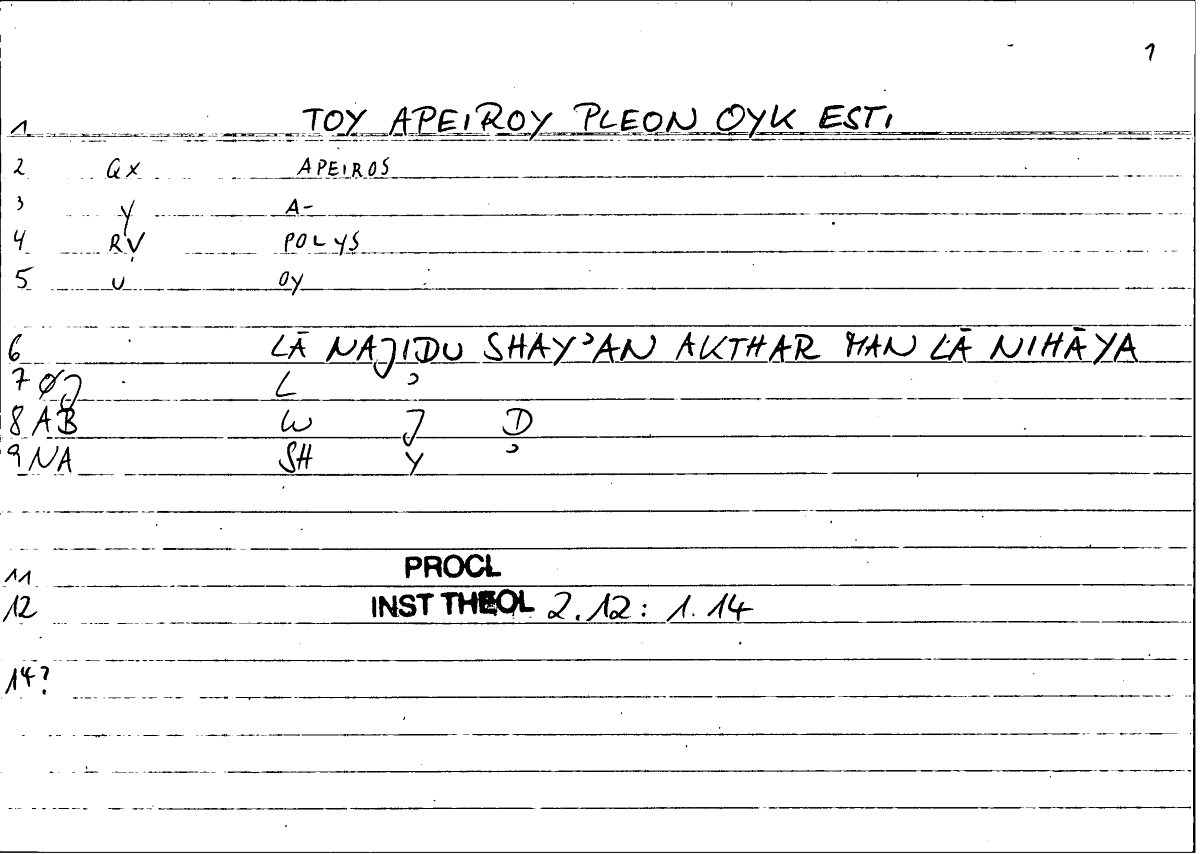 1
1 TOY APEIROY PLEON OYK ESTI
2 QX APEIROS
3 Y A-
4 RV POLYS
5 U OY
6 LĀ NAJIDU SHAY'AN AKTHAR MAN LĀ NIHĀYA
7 ØJ L '
8 AB W J D
9 NA SH Y '
11 PROCL
12 INST THEOL 2.12: 1.14
14?